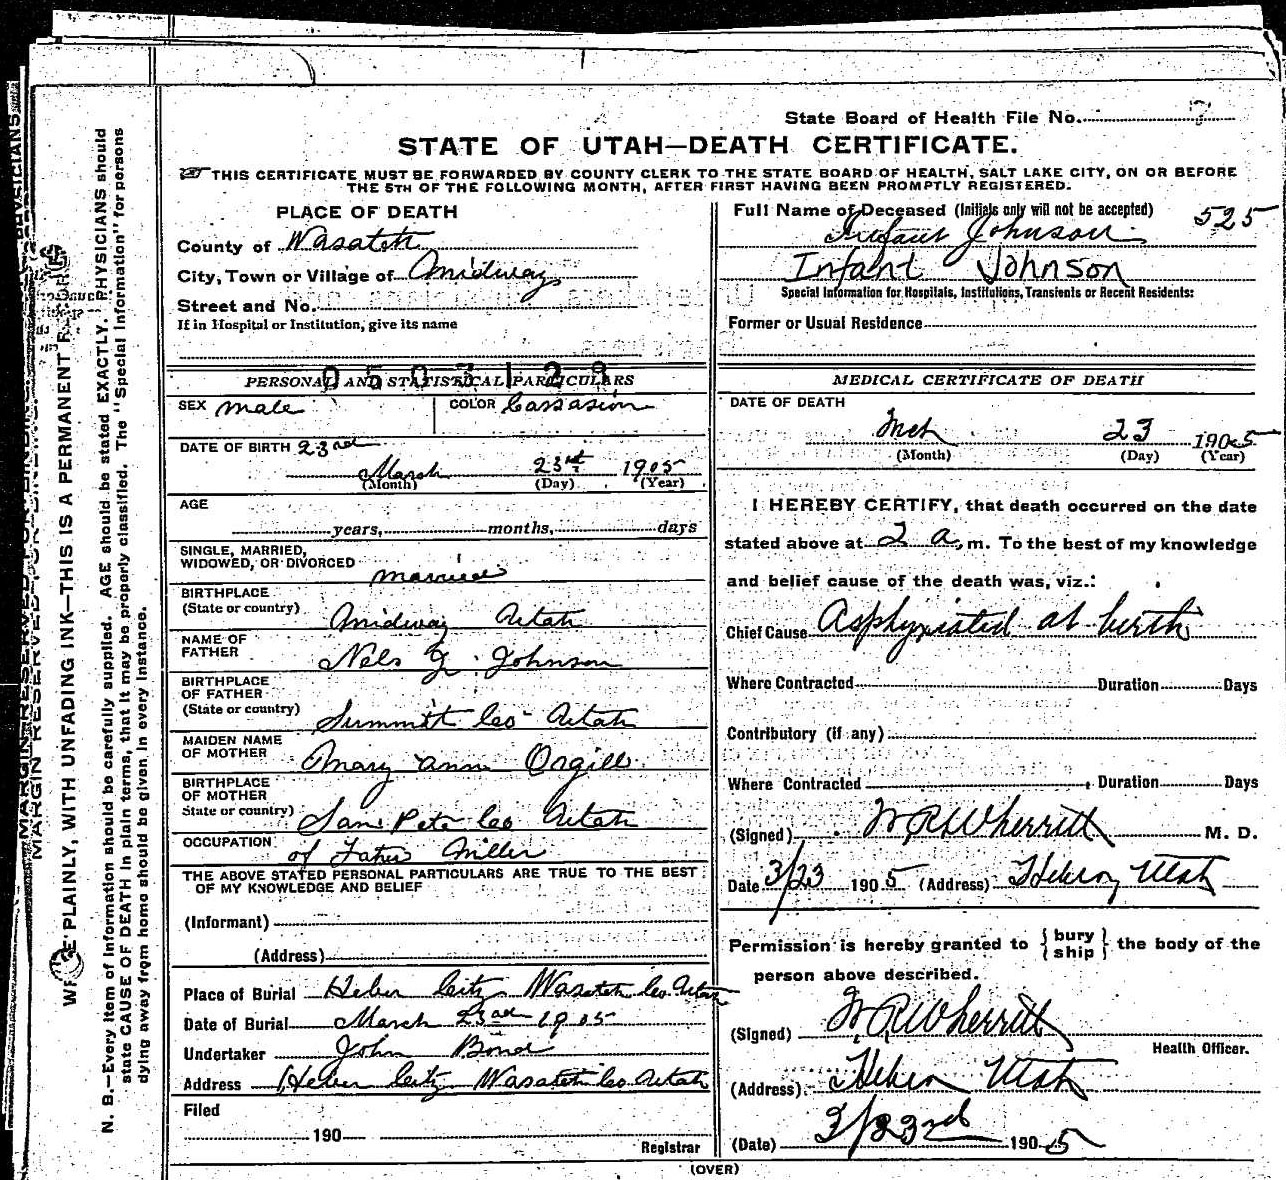 State Board of Health File No.
STATE OF UTAH—DEATH CERTIFICATE.
THIS CERTIFICATE MUST BE FORWARDED BY COUNTY CLERK TO THE STATE BOARD OF HEALTH, SALT LAKE CITY, ON OR BEFORE
THE 5TH OF THE FOLLOWING MONTH, AFTER FIRST HAVING BEEN PROMPTLY REGISTERED.
PLACE OF DEATH
County of Wasatch
City, Town or Village of Midway
Street and No.
If in Hospital or Institution, give its name
Full Name of Deceased (Initials only will not be accepted) 525
Infant Johnson
Infant Johnson
Special Information for Hospitals, Institutions, Transients or Recent Residents:
Former or Usual Residence
0503123
PERSONAL AND STATISTICAL PARTICULARS
SEX male COLOR Cassasion
DATE OF BIRTH 23rd
March 23rd 1905
(Month) (Day) (Year)
AGE
years, months, days
SINGLE, MARRIED,
WIDOWED, OR DIVORCED married
BIRTHPLACE
(State or country) Midway Utah
NAME OF
FATHER Nels Johnson
BIRTHPLACE
OF FATHER
(State or country) Summit Co Utah
MAIDEN NAME
OF MOTHER Mary Ann Orgill
BIRTHPLACE
OF MOTHER
State or country) San Pete Co Utah
OCCUPATION of Father Miller
THE ABOVE STATED PERSONAL PARTICULARS ARE TRUE TO THE BEST
OF MY KNOWLEDGE AND BELIEF
(Informant)
(Address)
Place of Burial Heber City Wasatch Co. Utah
Date of Burial March 23rd 1905
Undertaker John Bond
Address Heber City Wasatch Co Utah
Filed
190
Registrar
MEDICAL CERTIFICATE OF DEATH
DATE OF DEATH
Mch 23 1905
(Month) (Day) (Year)
I HEREBY CERTIFY, that death occurred on the date
stated above at 2 a, m. To the best of my knowledge
and belief cause of the death was, viz.:
Chief Cause Asphyxiated at birth
Where Contracted Duration Days
Contributory (if any)
Where Contracted , Duration Days
(Signed) W R Wherritt M. D.
Date 3/23 1905 (Address) Heber Utah
Permission is hereby granted to {bury
ship} the body of the
person above described.
(Signed) W R Wherritt
Health Officer.
(Address) Heber Utah
(Date) 3/23rd 1905
(OVER)
MARGIN RESERVED FOR BINDING.
WRITE PLAINLY, WITH UNFADING INK—THIS IS A PERMANENT
N. B.—Every item of information should be carefully supplied. AGE should be stated EXACTLY. PHYSICIANS should
state CAUSE OF DEATH in plain terms, that it may be properly classified. The "Special Information" for persons
dying away from home should be given in every instance.